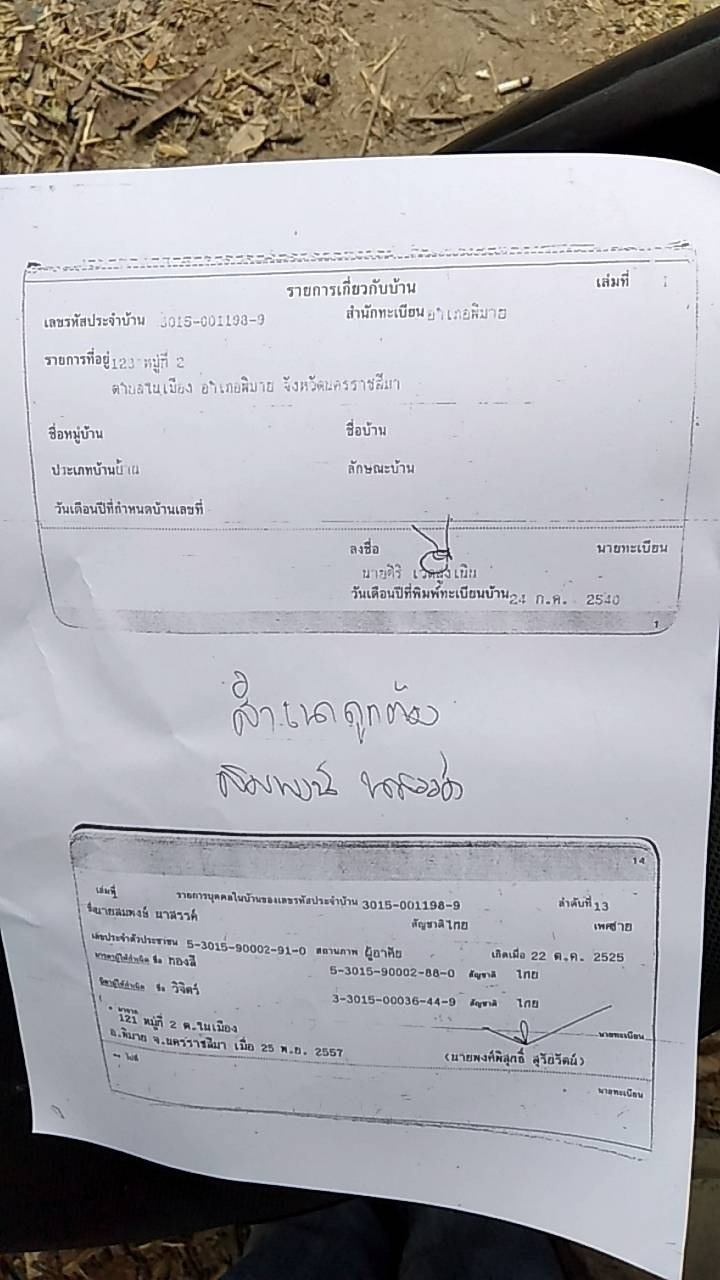 รายการเกี่ยวกับบ้าน เล่มที่ 1
เลขรหัสประจำบ้าน 3015-001198-9 สำนักทะเบียน อำเภอพิมาย
รายการที่อยู่ 123 หมู่ที่ 2
ตำบลในเมือง อำเภอพิมาย จังหวัดนครราชสีมา
ชื่อหมู่บ้าน ชื่อบ้าน
ประเภทบ้าน บ้าน ลักษณะบ้าน
วันเดือนปีที่กำหนดบ้านเลขที่
ลงชื่อ นายทะเบียน
นายศิริ เวดสูงเนิน
วันเดือนปีที่พิมพ์ทะเบียนบ้าน 24 ก.ค. 2540
1
สำเนาถูกต้อง
สมพงษ์ นาสรรค์
14
เล่มที่ 1 รายการบุคคลในบ้านของเลขรหัสประจำบ้าน 3015-001198-9 ลำดับที่ 13
ชื่อ นายสมพงษ์ นาสรรค์ สัญชาติ ไทย เพศ ชาย
เลขประจำตัวประชาชน 5-3015-90002-91-0 สถานภาพ ผู้อาศัย เกิดเมื่อ 22 ต.ค. 2525
มารดาผู้ให้กำเนิด ชื่อ ทองสี 5-3015-90002-88-0 สัญชาติ ไทย
บิดาผู้ให้กำเนิด ชื่อ วิจิตร์ 3-3015-00036-44-9 สัญชาติ ไทย
* มาจาก
121 หมู่ที่ 2 ต.ในเมือง นายทะเบียน
อ.พิมาย จ.นครราชสีมา เมื่อ 25 พ.ย. 2557 (นายพงศ์พิสุทธิ์ สุวัยวัฒน์)
** ไปที่
นายทะเบียน